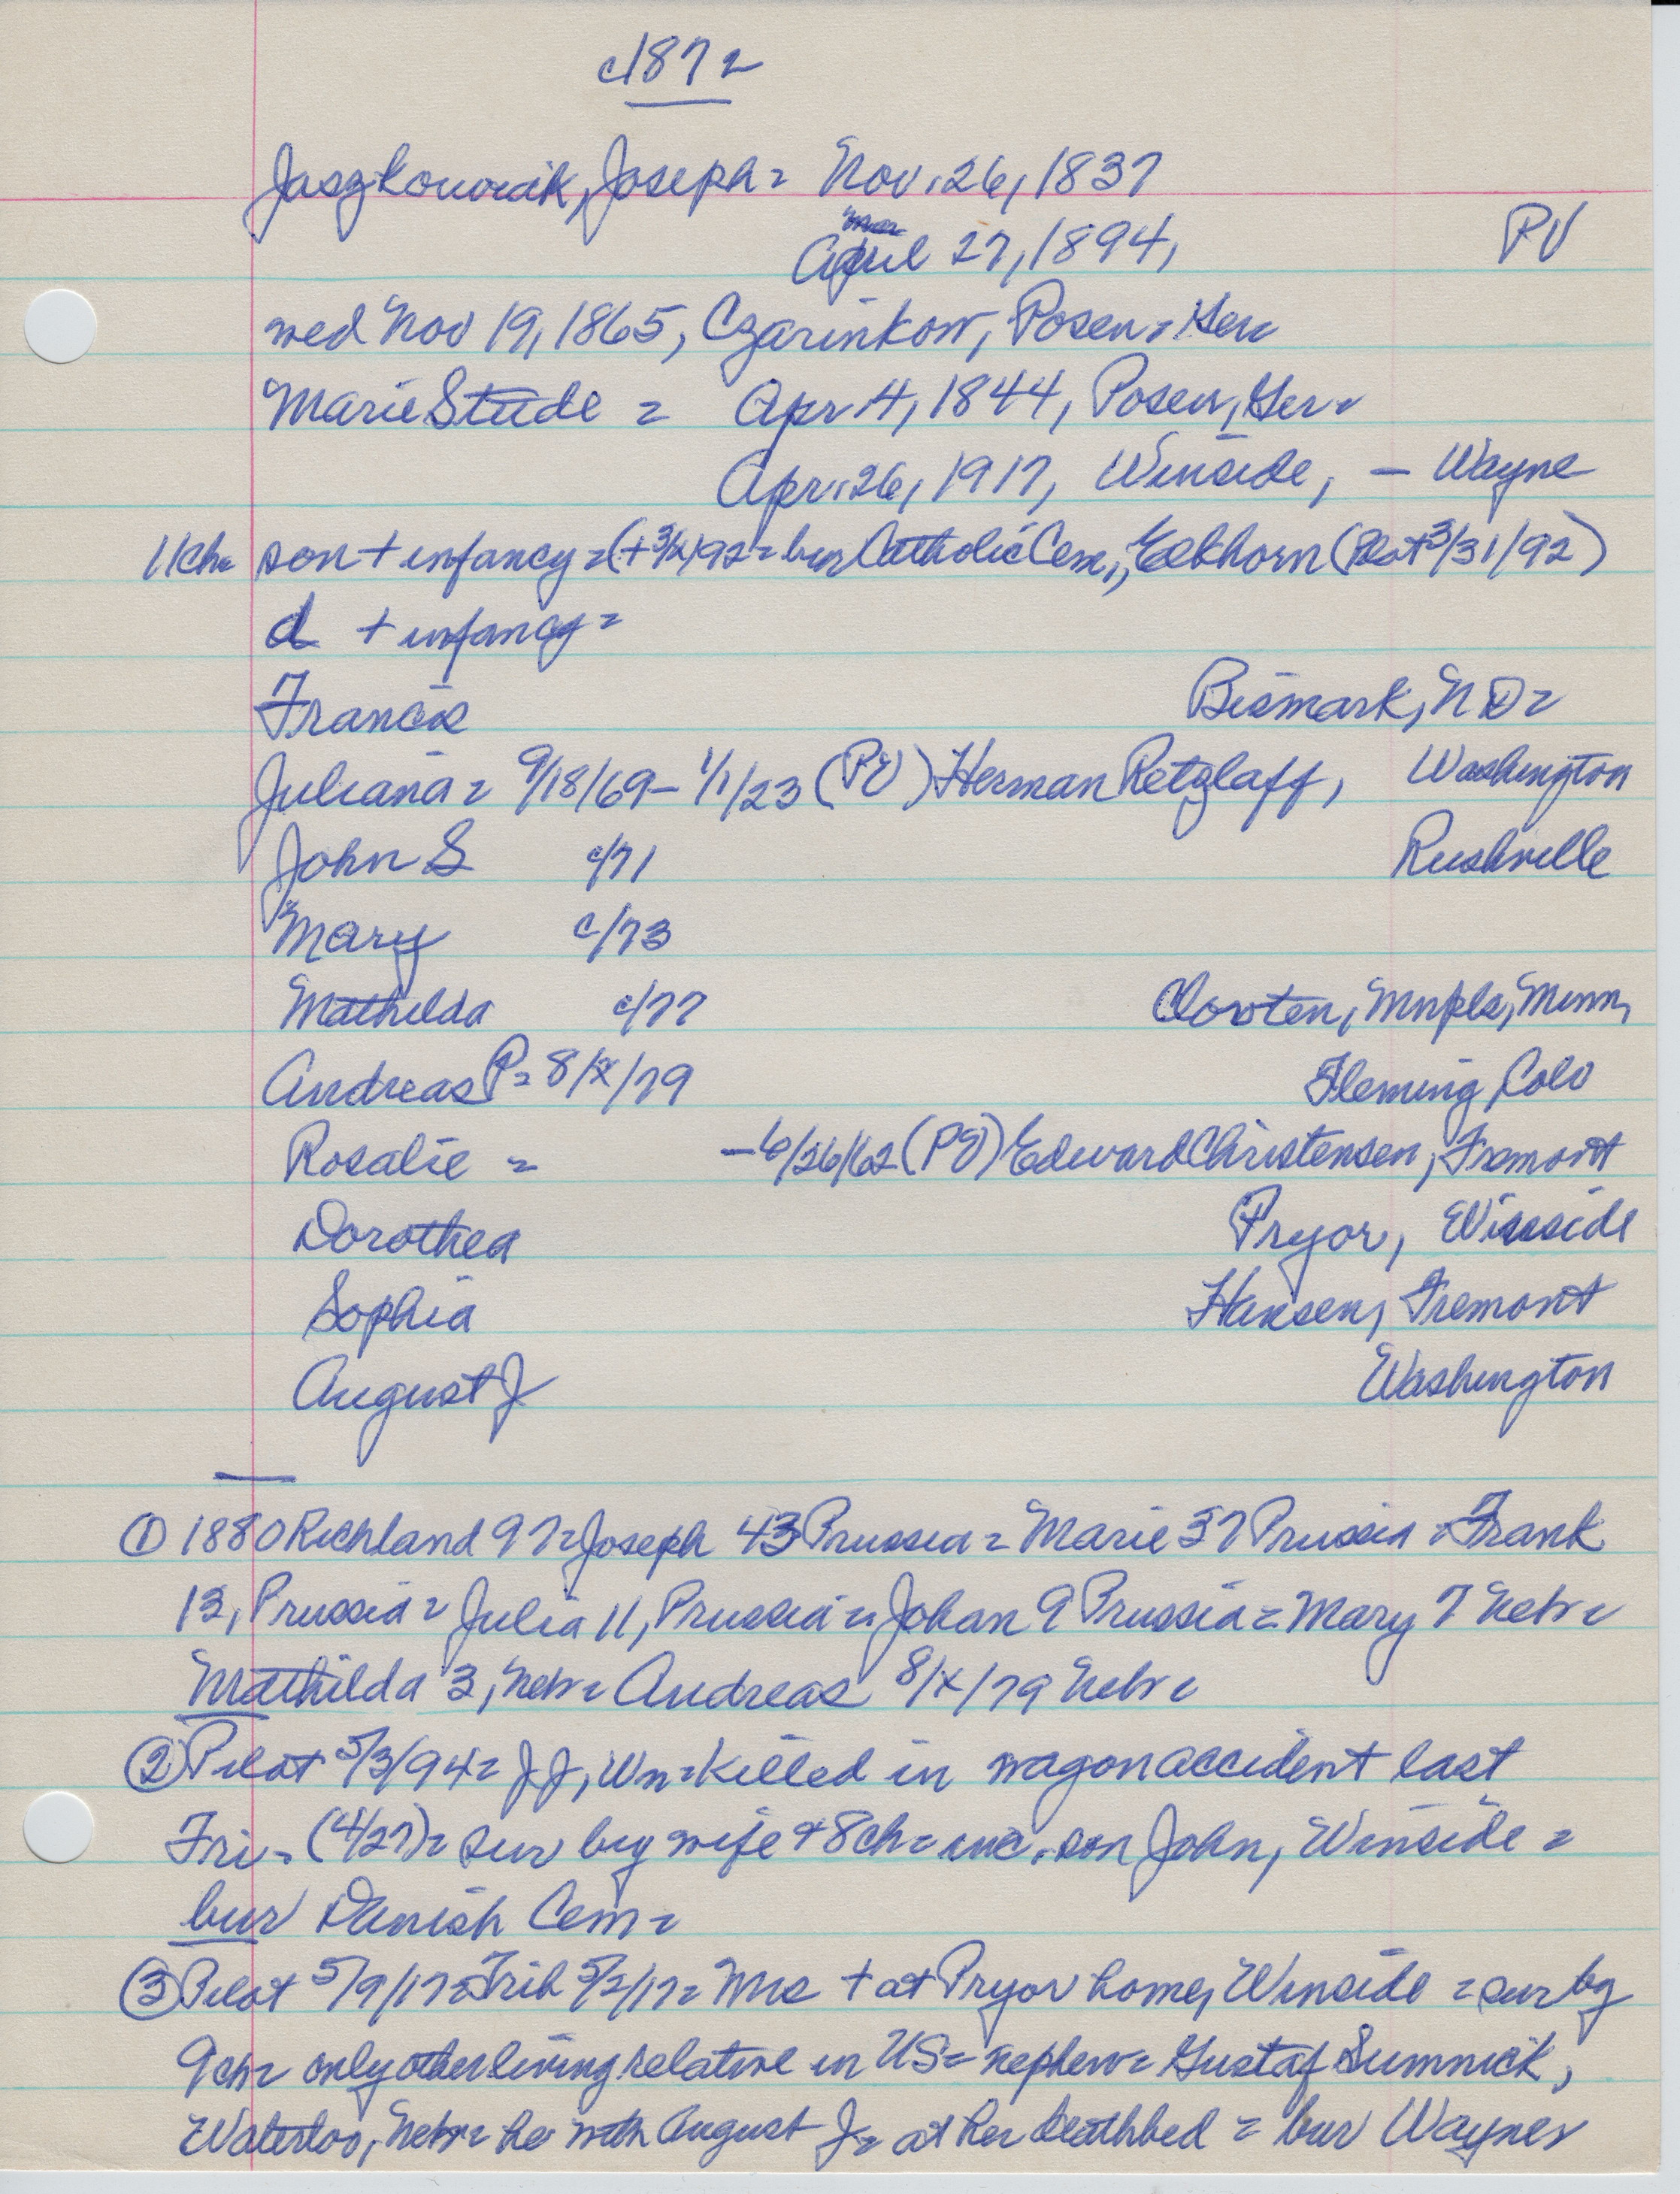 c1872
Jaszkowiak, Joseph = Nov. 26, 1837
April 27, 1894, PV
wed Nov 19, 1865, Czarinkow, Posen, Ger=
Marie Stüde = Apr 4, 1844, Posen, Ger=
Apr. 26, 1917, Winside, - Wayne
11ch= son + infancy = (+3/x/92 = bur Catholic Cem., Elkhorn (Pilot 3/31/92)
d + infancy =
Francis Bismark, ND=
Juliana = 9/18/69 - 1/1/23 (PV) Herman Retzlaff, Washington
John S c/71 Rushville
Mary c/73
Mathilda c/77 Mnpls, Minn,
Andreas P= 8/x/79 Fleming Colo
Rosalie = -6/26/62 (PV) Edward Christensen, Fremont
Dorothea Pryor, Winside
Sophia Hansen, Fremont
August J Washington
① 1880 Richland 97= Joseph 43 Prussia = Marie 37 Prussia = Frank
13, Prussia = Julia 11, Prussia = Johan 9 Prussia = Mary 7 Nebr=
Mathilda 3, Nebr= Andreas 8/x/79 Nebr=
② Pilot 5/3/94= JJ, Wn= killed in wagon accident last
Fri= (4/27)= sur by wife + 8ch= inc. son John, Winside =
bur Danish Cem=
③ Pilot 5/9/17= Trib 5/2/17= Mrs + at Pryor home, Winside = sur by
9ch= only other living relative in US= nephew= Gustaf Sumnick,
Waterloo, Nebr= he with August J= at her deathbed = bur Wayne=